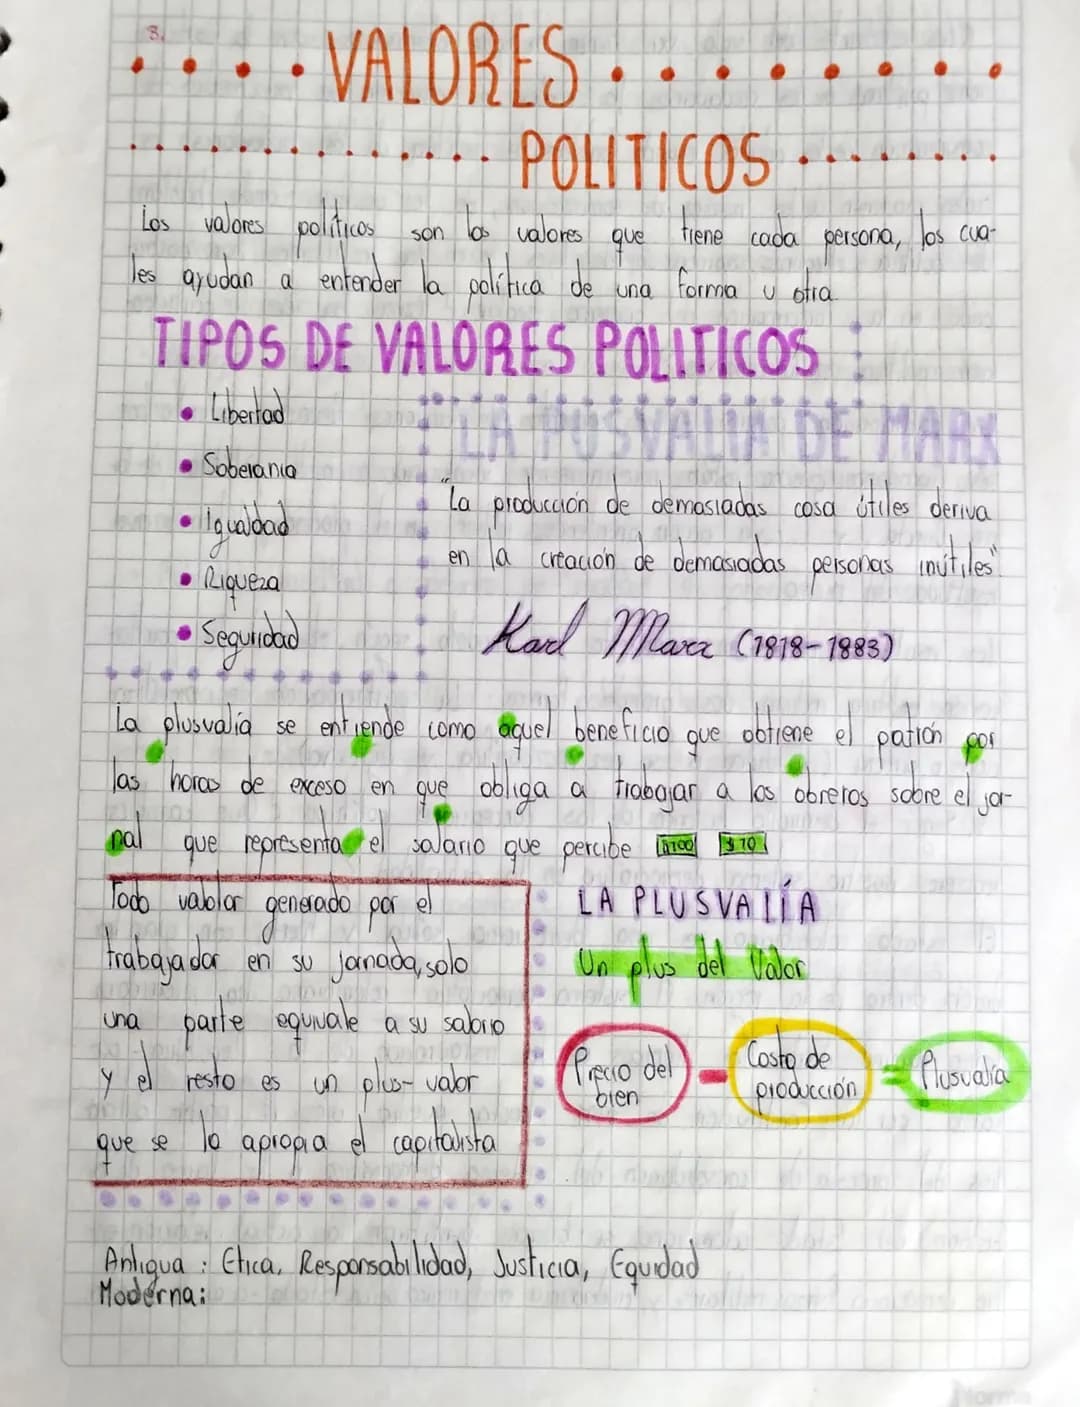 3.
VALORES
POLITICOS
Los valores políticos son los valores que tiene cada persona, los cua-
les ayudan a entender la política de una forma u otra
TIPOS DE VALORES POLITICOS
• Libertad
• Soberania
• Igualdad
• Riqueza
• Seguridad
LA PUSVALIA DE MARX
"La producción de demasiadas cosa útiles deriva
en la creación de demasiadas personas inútiles".
Karl Marx (1818-1883)
La plusvalía se entiende como aquel beneficio que obtiene el patrón por
las horas de exceso en que obliga a trabajar a los obreros sobre el jor-
nal que representa el salario que percibe $100 $70
Todo valolor generado por el
trabajador en su jornada, solo
una parte equivale a su salario
y el resto es un plus-valor
que se lo apropia el capitalista
LA PLUSVALÍA
Un plus del Valor
Precio del
bien
-
Costo de
producción
=
Plusvalía
Antigua: Etica, Responsabilidad, Justicia, Equidad
Moderna:
Norma